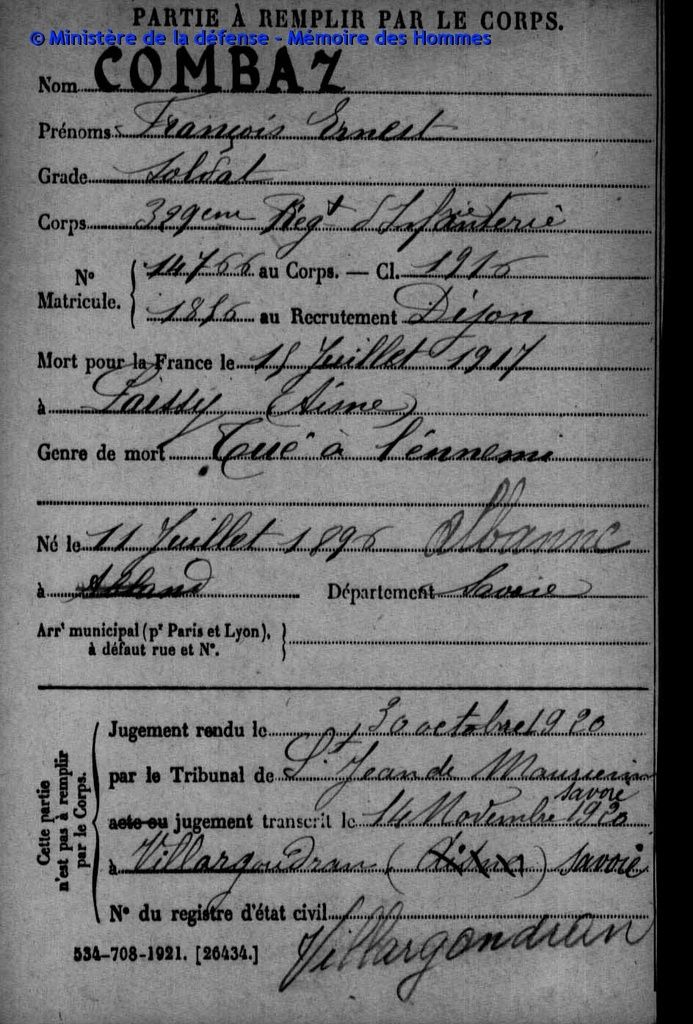 PARTIE À REMPLIR PAR LE CORPS.
© Ministère de la défense - Mémoire des Hommes
Nom COMBAZ
Prénoms François Ernest
Grade Soldat
Corps 329eme Regt d'Infanterie
N° Matricule. 14766 au Corps. — Cl. 1916
1856 au Recrutement Dijon
Mort pour la France le 15 Juillet 1917
à Paissy (Aisne)
Genre de mort Tué à l'énnemi
Né le 11 Juillet 1896 Albanne
à Département Savoie
Arrt municipal (pr Paris et Lyon),
à défaut rue et N°.
Cette partie n'est pas à remplir par le Corps.
Jugement rendu le 30 octobre 1920
par le Tribunal de St Jean de Maurienne
Savoie
acte ou jugement transcrit le 14 Novembre 1920
à Villargondran (Aisne) Savoie
N° du registre d'état civil
Villargondran
534-708-1921. [26434.]